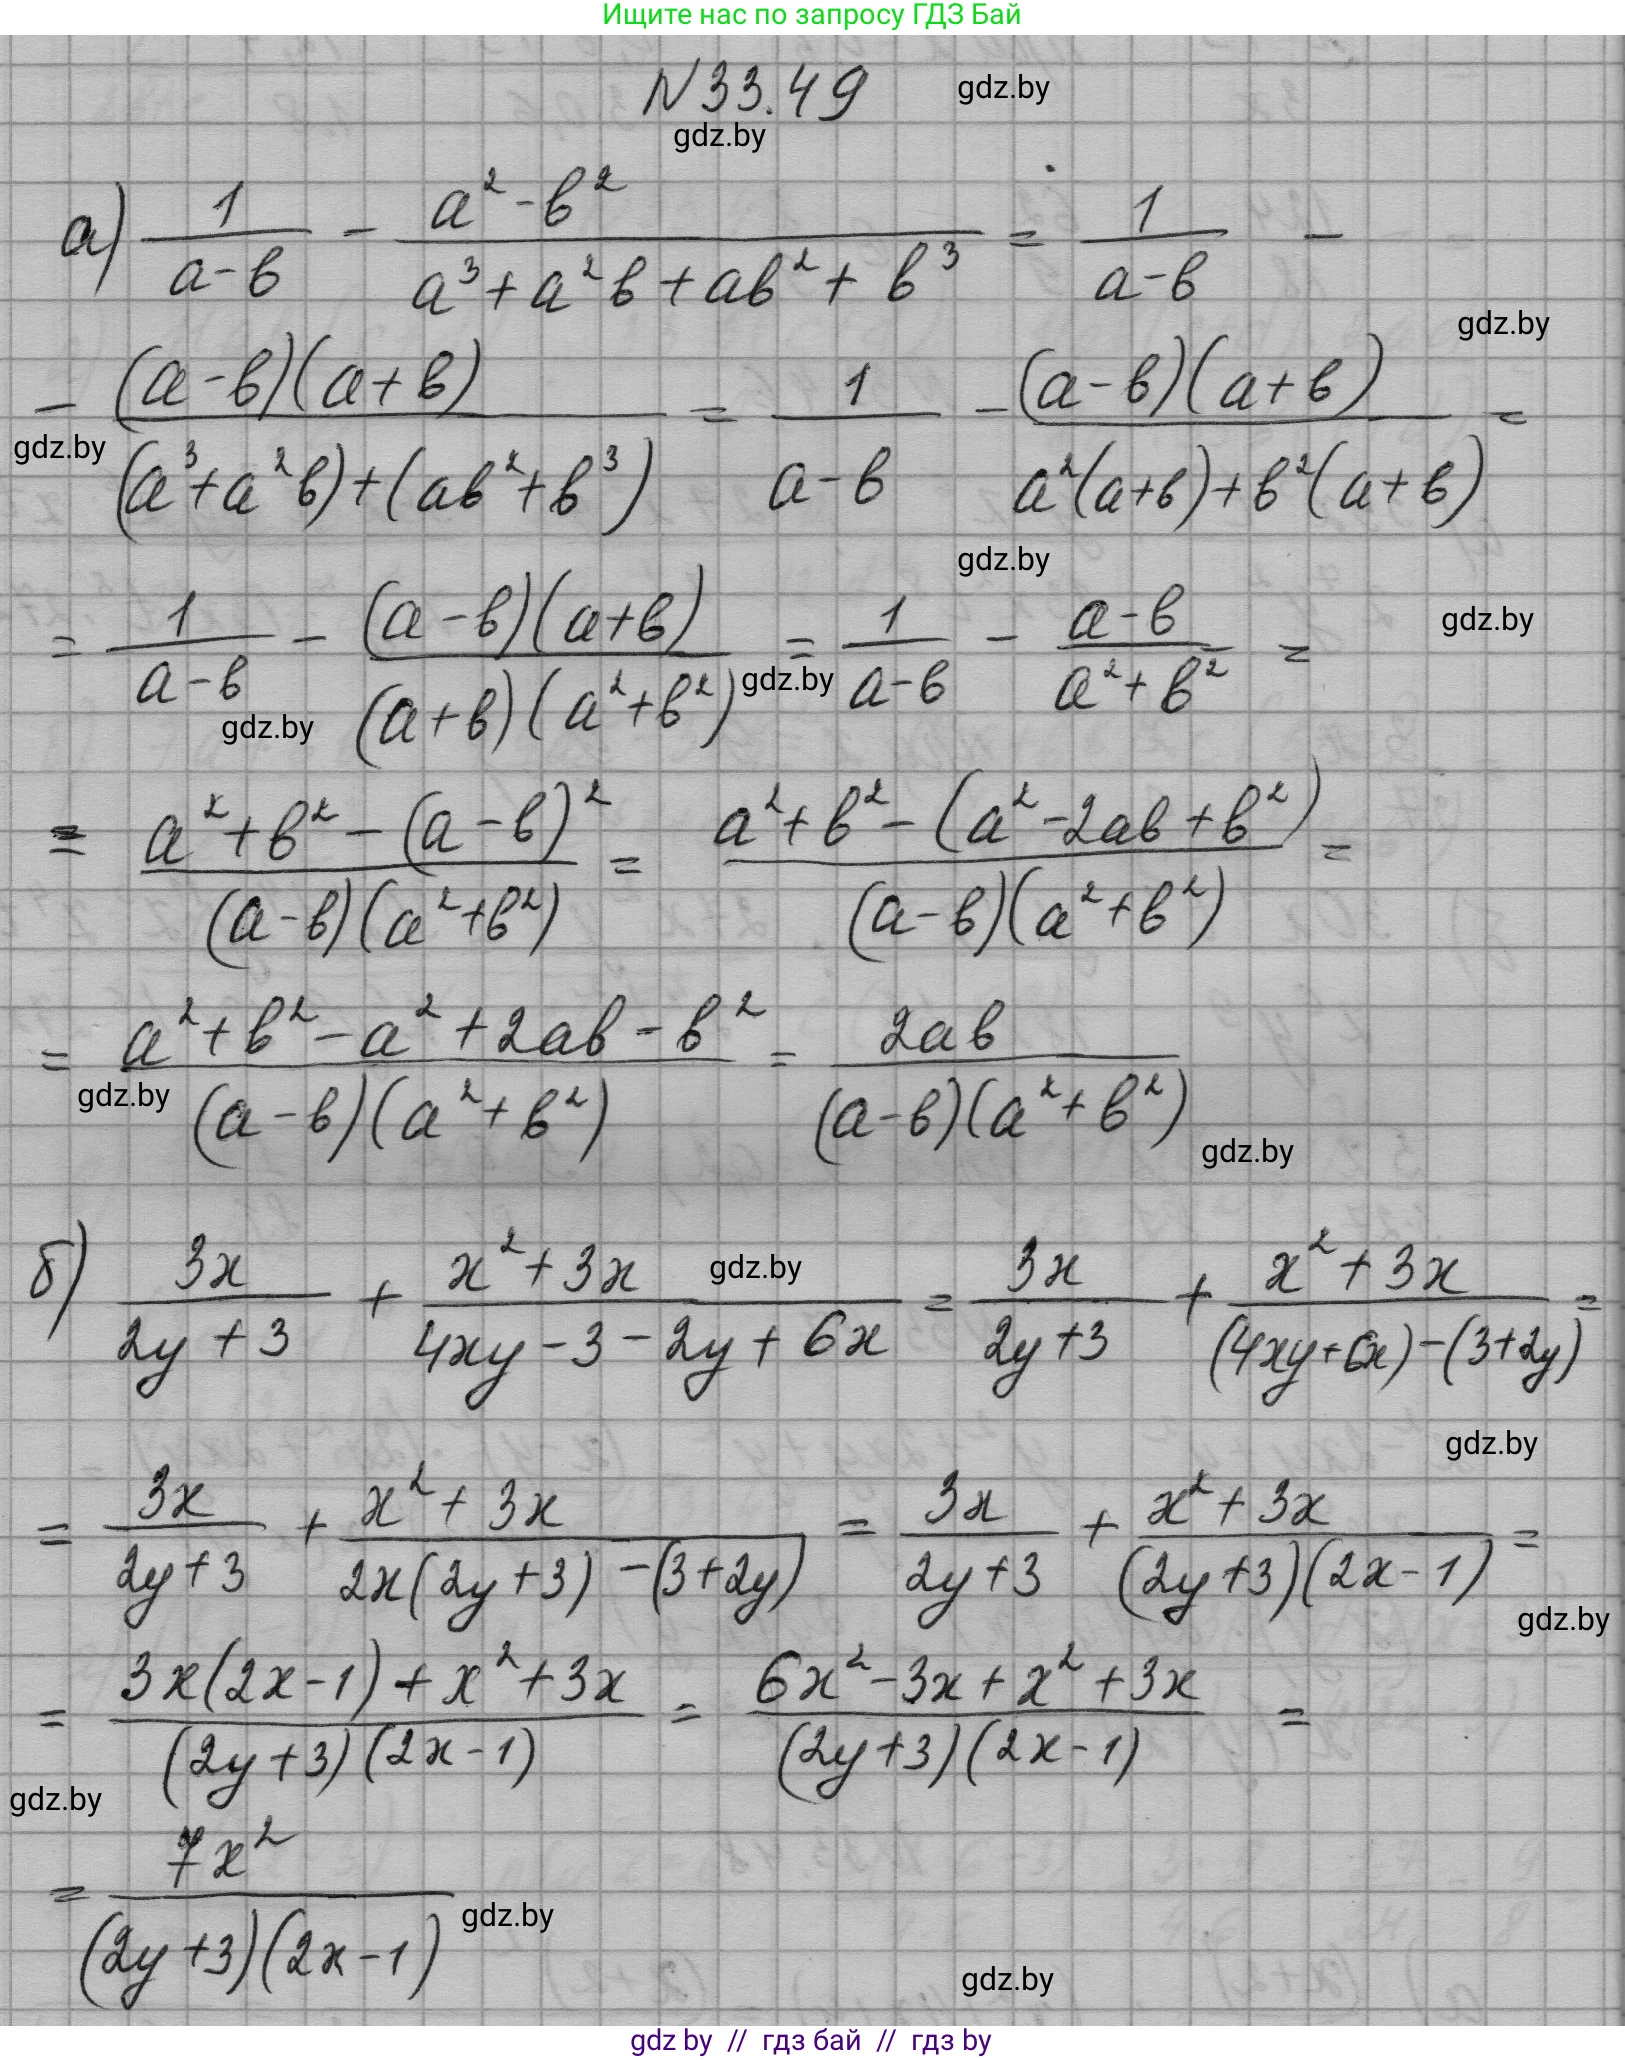 Ищите нас по запросу ГДЗ Бай
N33.49 gdz.by
gdz.by
а) 1/(a-в) - (a²-в²)/(a³+a²в+aв²+в³) = 1/(a-в) -
gdz.by
- (a-в)(a+в)/((a³+a²в)+(aв²+в³)) = 1/(a-в) - (a-в)(a+в)/(a²(a+в)+в²(a+в)) =
gdz.by
gdz.by
= 1/(a-в) - (a-в)(a+в)/((a+в)(a²+в²)) = 1/(a-в) - (a-в)/(a²+в²) =
gdz.by
gdz.by
gdz.by
= (a²+в²-(a-в)²)/((a-в)(a²+в²)) = (a²+в²-(a²-2aв+в²))/((a-в)(a²+в²)) =
= (a²+в²-a²+2aв-в²)/((a-в)(a²+в²)) = 2aв/((a-в)(a²+в²))
gdz.by
gdz.by
б) 3x/(2y+3) + (x²+3x)/(4xy-3-2y+6x) = 3x/(2y+3) + (x²+3x)/((4xy+6x)-(3+2y)) =
gdz.by
gdz.by
= 3x/(2y+3) + (x²+3x)/(2x(2y+3)-(3+2y)) = 3x/(2y+3) + (x²+3x)/((2y+3)(2x-1)) =
gdz.by
= (3x(2x-1)+x²+3x)/((2y+3)(2x-1)) = (6x²-3x+x²+3x)/((2y+3)(2x-1)) =
gdz.by
= 7x²/((2y+3)(2x-1))
gdz.by
gdz.by
gdz by // гдз бай // гдз by